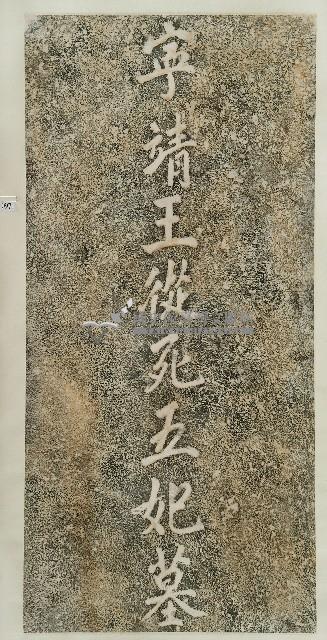 寧靖王從死五妃墓